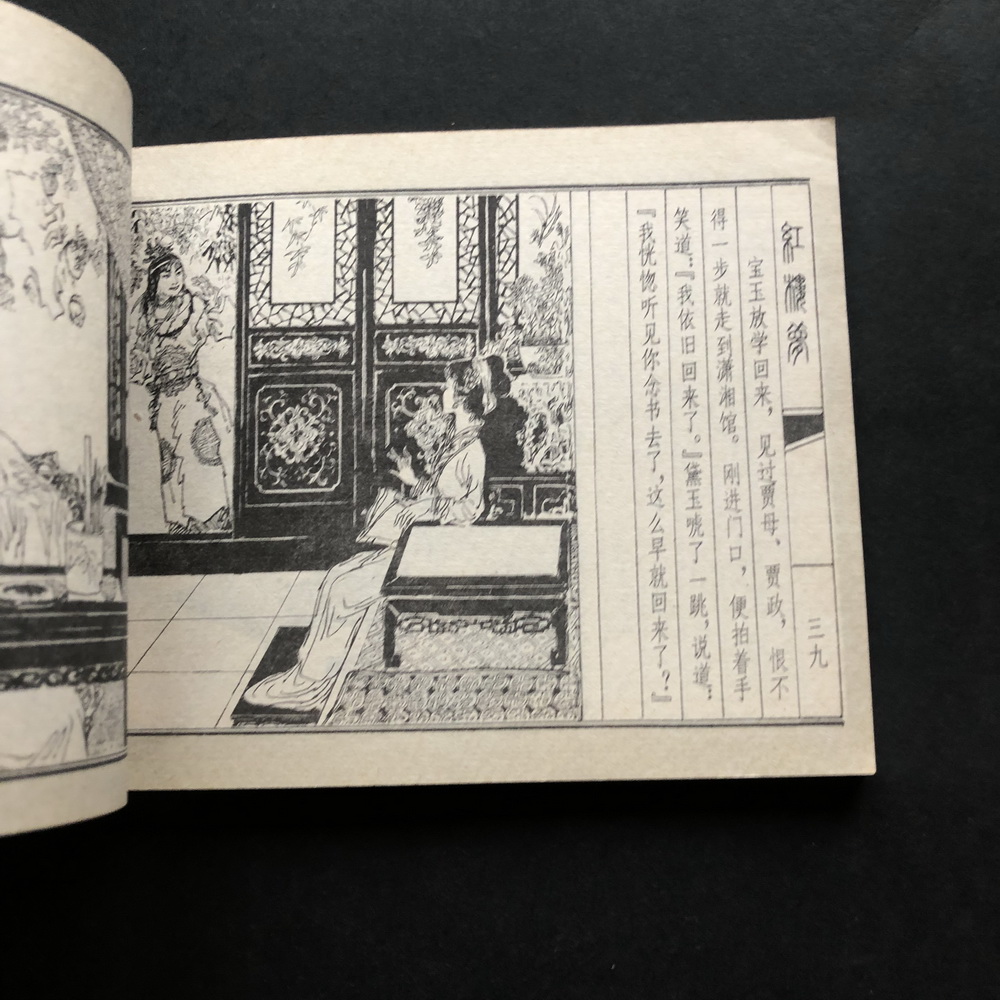 紅楼夢
宝玉放学回来，见过贾母、贾政，恨不
得一步就走到潇湘馆。刚进门口，便拍着手
笑道：『我依旧回来了。』黛玉唬了一跳，说道：
『我恍惚听见你念书去了，这么早就回来了？』
三九